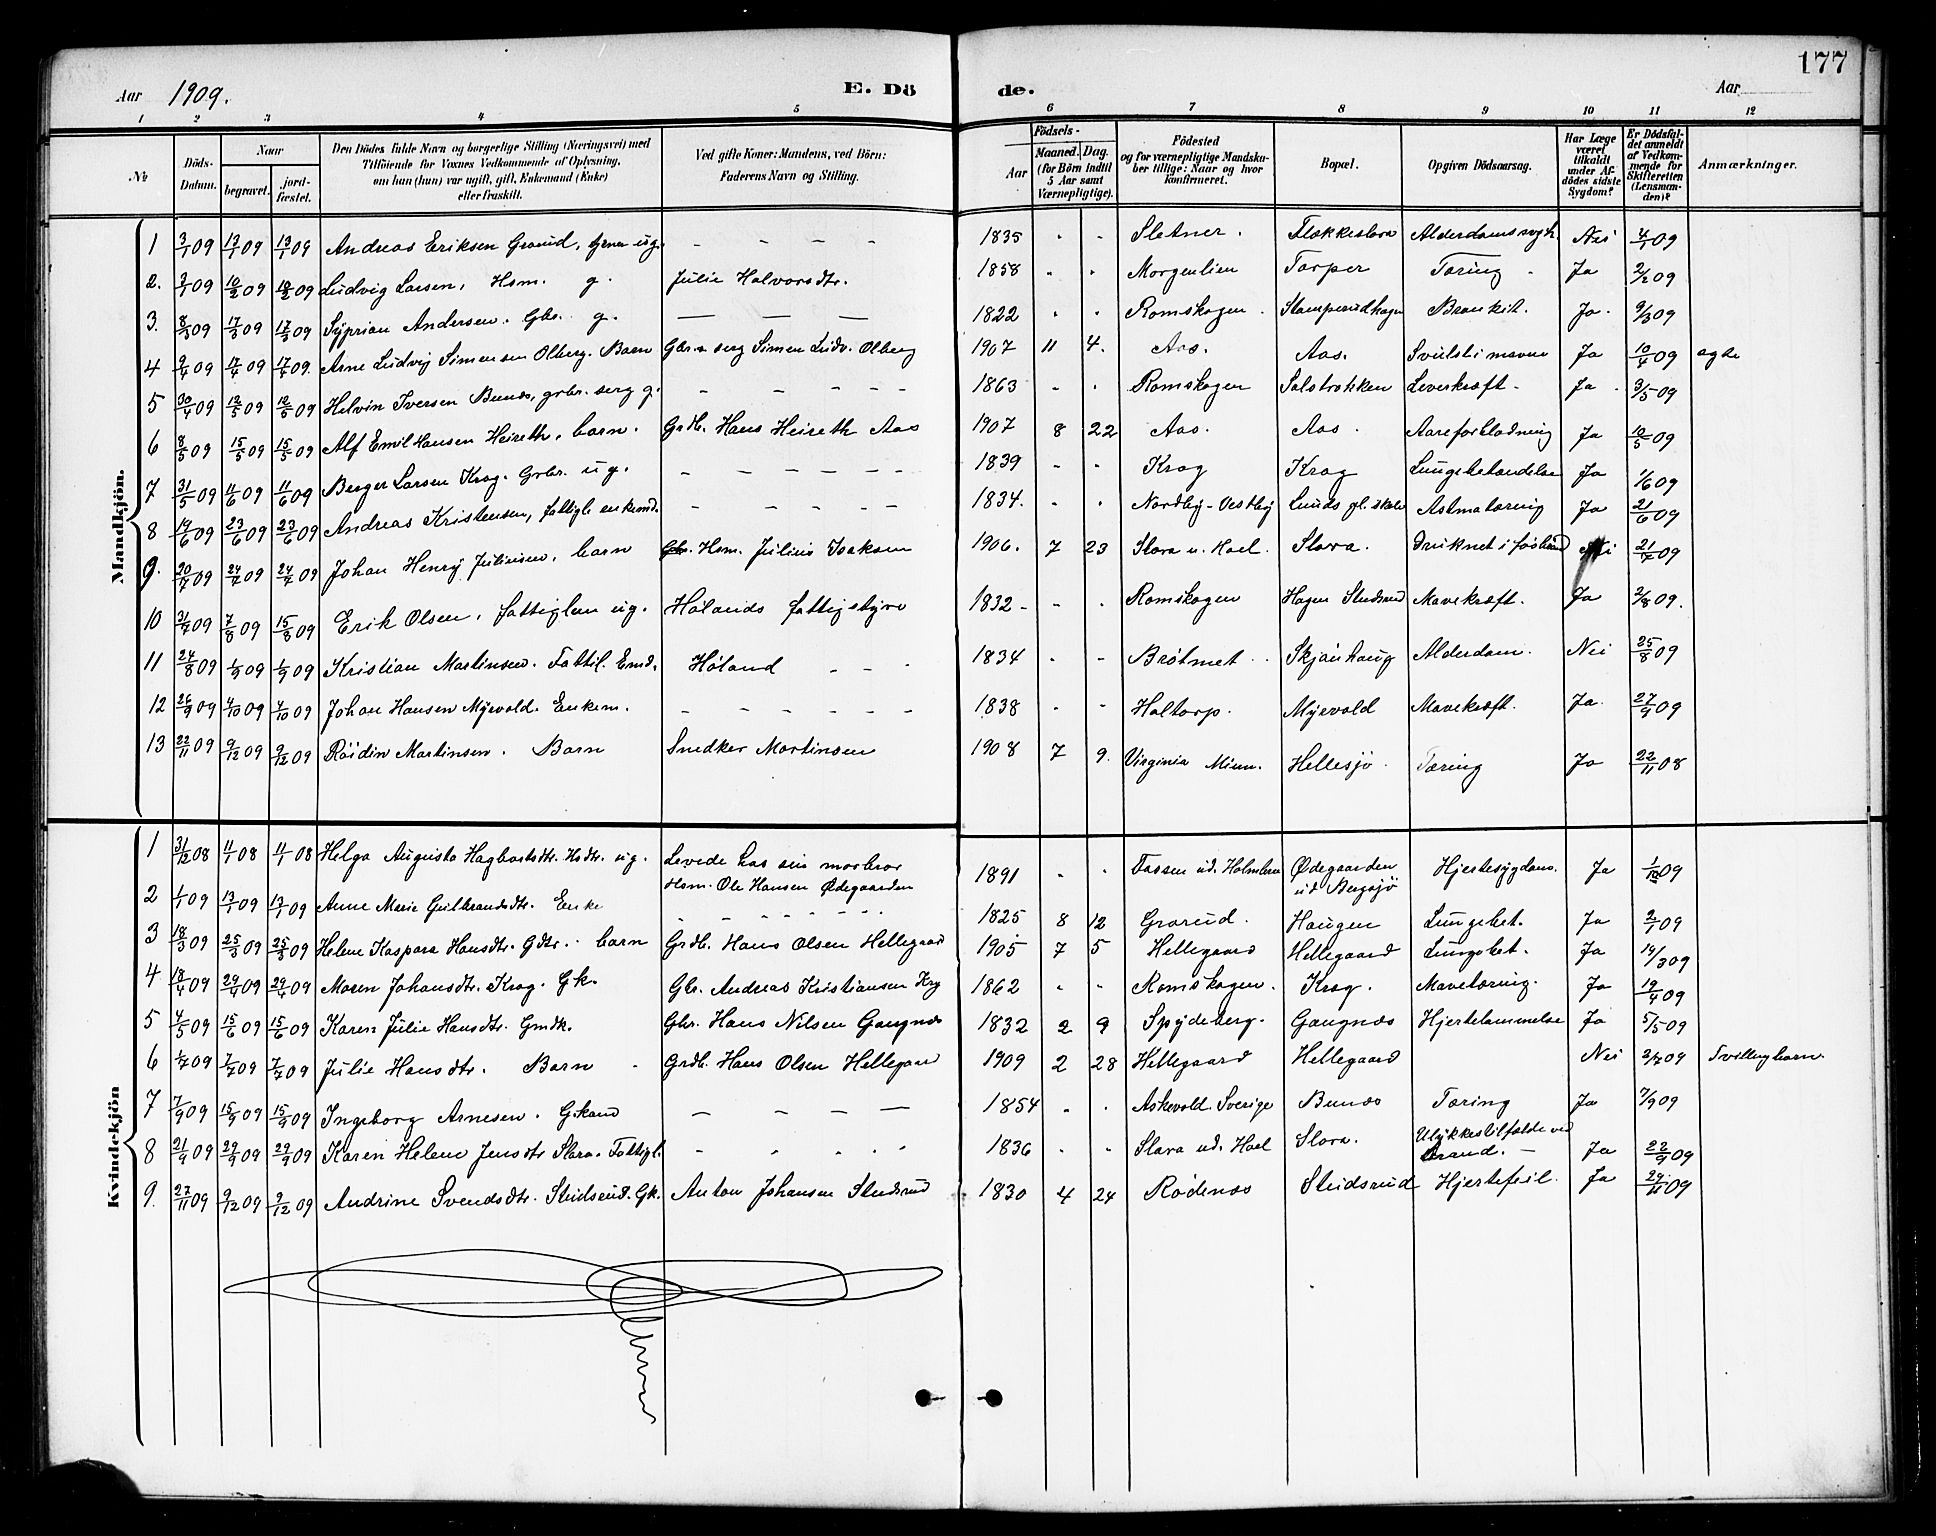 177
Aar 1909.
E. Dö de.
Aar
1 2 3 4 5 6 7 8 9 10 11 12
№
Döds-Datum.
Naar
begravet.
jord-fæstet.
Den Dödes fulde Navn og borgerlige Stilling (Næringsvei) med Tilföiende for Voxnes Vedkommende af Oplysning, om han (hun) var ugift, gift, Enkemand (Enke) eller fraskilt.
Ved gifte Koner: Mandens, ved Börn: Faderens Navn og Stilling.
Födsels-
Aar
Maaned. Dag.
(for Börn indtil 5 Aar samt Værnepligtige).
Födested og for værnepligtige Mandskaber tillige: Naar og hvor konfirmeret.
Bopæl.
Opgiven Dödsaarsag.
Har Læge været tilkaldt under Afdödes sidste Sygdom?
Er Dödsfaldet anmeldt af Vedkommende for Skifteretten (Lensmanden)?
Anmærkninger.
Mandkjön.
1 3/1 09 13/1 09 13/1 09 Andreas Eriksen Graarud, ug. – – – – 1835 " " Sletner. Flakkeslora Alderdomssygh. Nei 4/1 09
2. 09 10/2 09 09 Ludvig Larsen, Hsm. g. Julie Halvorsdtr. 1858 " " Morgenlien Torper Tæring Ja 2/2 09
3. 8/3 09 17/3 09 17/3 09 Syprian Andersen. Gbr. g. – – – 1822 " " Romskogen. Stomperudhagen Bronkit. Ja. 9/3 09
4 9/4 09 17/4 09 17/4 09. Arne Ludvig Simensen Olberg. Barn Gbr. serg Simen Ludv. Olberg 1907 11 4. Aas. Aas. Svulst i maven Ja 10/4 09 ægte
5 30/4 09 12/5 09 12/5 09 Helvin Iversen Bunes, grbr. serg g. – – – – – 1863 " " Romskogen Solstrokken Leverkræft – Ja. 3/5 09
6 8/5 09 15/5 09 15/5 09 Alf Emil Hansen Heireth, barn. Grdb. Hans Heireth Aas 1907 8 22 Aas. Aas. Aareforblødning Ja 10/5 09
7 31/5 09 11/6 09 11/6 09 Berger Larsen Krog. Grbr. ug. – – – – – – 1839 " " Krog Krog Lungebetændelse Ja 1/6 09
8 19/6 09 23/6 09 23/6 09 Andreas Kristensen, fattigl. enkemd. 1834. " " Nordby–Vestby Lunds gl. skole Astmatæring Ja 21/6 09
9. 20/7 09 24/7 09 24/7 09 Johan Henry Juliussen, barn Hsm. Julius Isaksen 1906. 7 23 Slora u. Hoel. Slora. Druknet i Nei 21/7 09
10 31/7 09 7/8 09 15/8 09 Erik Olsen, fattiglem ug. Hølands fattigstyre 1832 – – . Romskogen Hagen Studsrud Mavekræft. Ja 2/8 09.
11 24/8 09 1/9 09 1/9 09 Kristian Martinsen. Fattil. Emd. Høland – – – 1834 – – Brøtmet – Skjønhaug Alderdom. Nei 25/8 09
12 26/9 09 4/10 09 4/10 09 Johan Hansen Myrvold. Enkem. – – – – – – 1838 " " Haltorp. Myrvold Mavekræft. Ja. 27/9 09
13 22/11 09 9/12 09 9/12 09 Røidin Martinsen. Barn Snedker Martinsen 1908 7 9. Virginia Minn. Hellesjø. Tæring Ja 22/11 08
Kvindekjön
1 31/12 08 11/1 08 11/1 08 Helga Augusta Hagbartsdtr. Hsdtr. ug. Levede hos sin morbror Hsm. Ole Hansen Ødegaarden 1891 " " Fossen ud. Holmlien Ødegaarden ud Bergsjø Hjertesygdom. Ja 09
2 1/1 09 13/1 09 13/1 09 Anne Marie Gulbrandsdtr. Enke – – – – – – 1825 8 12 Grorud. Haugen Lungebet. Ja 2/1 09
3 18/3 09 25/3 09 25/3 09 Helene Kaspara Hansdtr. Gdtr. barn Grdb. Hans Olsen Hellegaard 1905 7 5 Hellegaard Hellegaard Lungebet. Ja 19/3 09
4 18/4 09 29/4 09 29/4 09 Maren Johansdtr. Krog. Gk. Gbr. Andreas Kristiansen Krog 1862 " " Romskogen. Krog. Mavetæring. Ja 19/4 09
5 4/5 09 15/6 09 15/6 09 Karen Julie Hansdtr. Gmdk. Gbr. Hans Nilsen Gangnæs 1832 2 9 Spydeberg. Gangnæs Hjertelammelse Ja 5/5 09
6 1/7 09 7/7 09 7/7 09 Julie Hansdtr. Barn Grdb. Hans Olsen Hellegaard 1909 2 28 Hellegaard Hellegaard Nei 2/7 09 Tvillingbarn
7 7/9 09 15/9 09 15/9 09 Ingeborg Arnesen. – – – – 1854 " " Askevold. Sverige Bunes Tæring Ja 7/9 09
8 21/9 09 29/9 09 29/9 09 Karen Helene Jensdtr Slora. Fattigl. – " " " " 1836 " " Slora ud. Hoel Slora. Ulykkestilfælde ved brand. – Ja 22/9 09
9. 27/11 09 9/12 09 9/12 09 Andrine Svendsdtr. Studsrud. Gk. Anton Johansen Studsrud 1830 4 24 Rødenæs Studsrud Hjertefeil. Ja 29/11 09